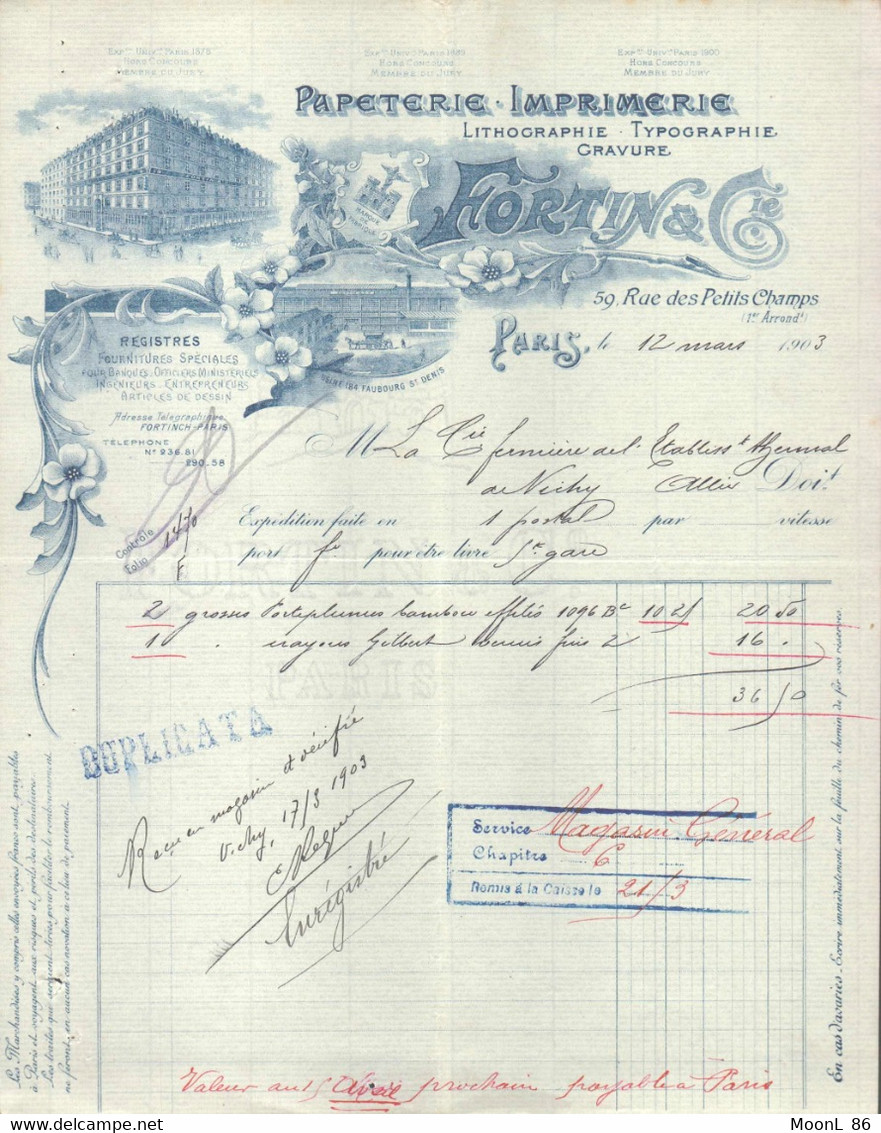 EXP.on UNIV.lle PARIS 1878
HORS CONCOURS
MEMBRE DU JURY
EXP.on UNIV.lle PARIS 1889
HORS CONCOURS
MEMBRE DU JURY
EXP.on UNIV.lle PARIS 1900
HORS CONCOURS
MEMBRE DU JURY
PAPETERIE · IMPRIMERIE
LITHOGRAPHIE · TYPOGRAPHIE
GRAVURE
MARQUE
FORTIN & Cie
59, Rue des Petits Champs
(1er Arrondt)
PARIS, le 12 mars 1903
184, FAUBOURG St DENIS
REGISTRES
FOURNITURES SPÉCIALES
POUR BANQUES · OFFICIERS MINISTÉRIELS
INGÉNIEURS · ENTREPRENEURS
ARTICLES DE DESSIN
Adresse Télégraphique
FORTINCH-PARIS
TÉLÉPHONE
Nos 236.81
290.58
M La Cie fermière de l'Etablisst thermal
de Vichy Allier Doit
Contrôle
Folio 1470
F
Expédition faite en 1 postal par vitesse
port fo pour être livré en gare
2 grosses Porteplumes bambou effilés 1096 Bc 10 25 20 50
1 " crayons Gilbert vernis fins 2 16 .
36 50
DUPLICATA
Reçu en magasin et vérifié
Vichy, 17/3 1903
Enrégistré
Service Magasin Général
Chapitre 6
Remis à la Caisse le 21/3
Valeur au 15 Avril prochain payable à Paris
Les Marchandises y compris celles envoyées franco sont payables
à Paris et voyagent aux risques et périls des destinataires
Les traites que seraient tirées pour faciliter le remboursement
ne feront en aucun cas novation à ce lieu de paiement.
En cas d'avaries. Ecrire immédiatement sur la feuille du chemin de fer vos réserves.
MoonL 86